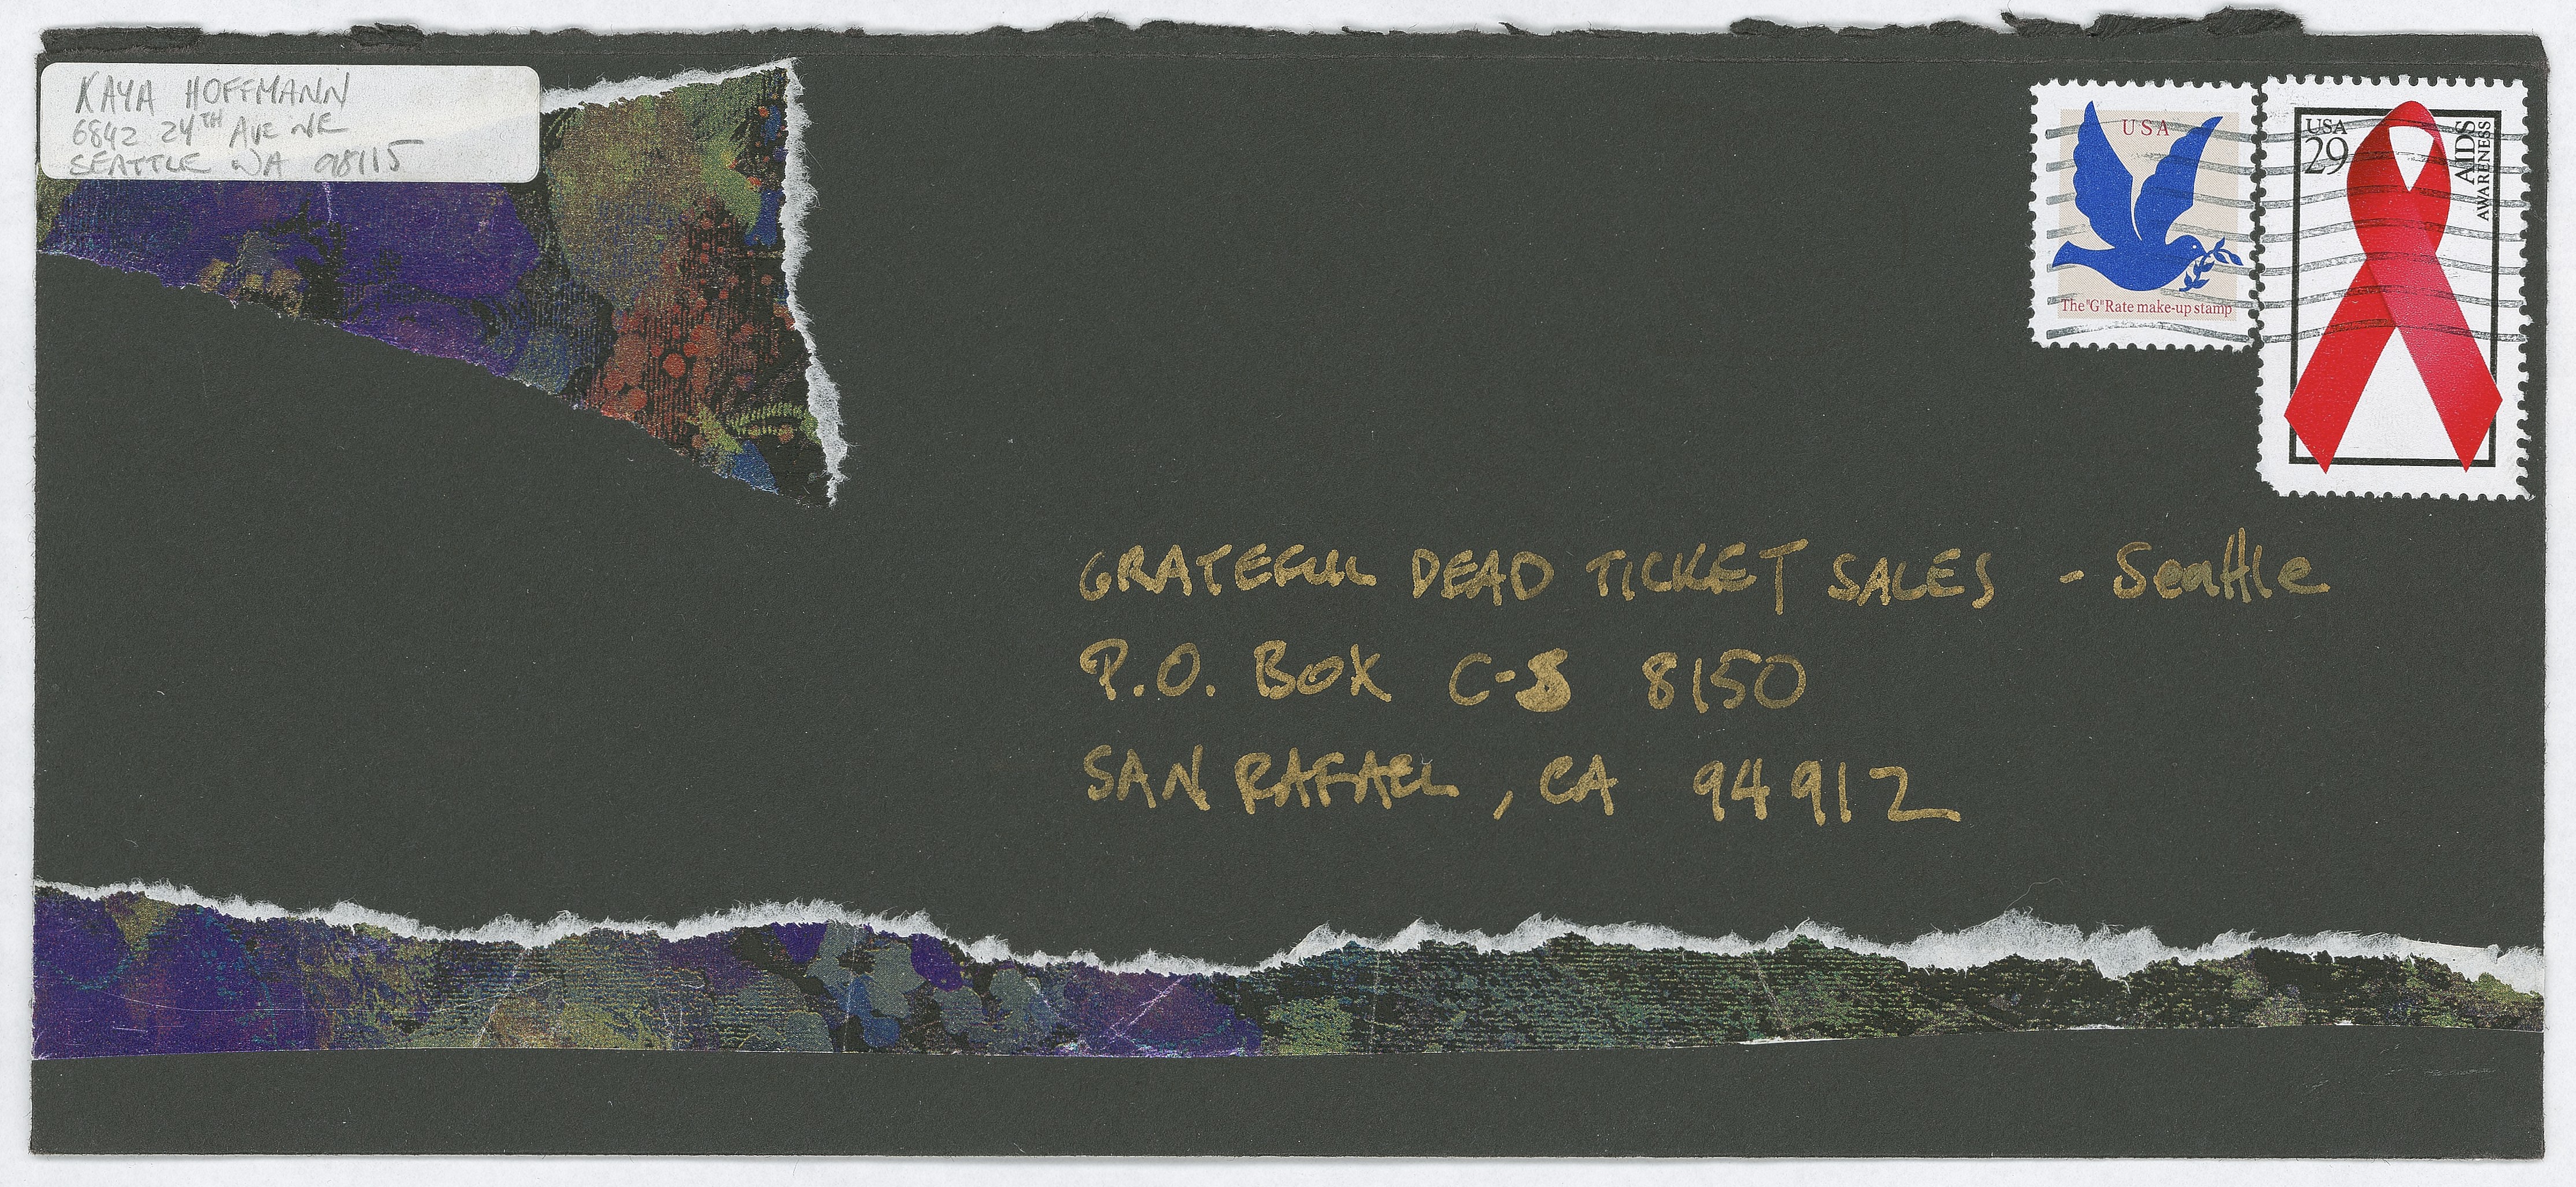 KAYA HOFFMANN
6842 24TH AVE NE
SEATTLE WA 98115
USA
The "G" Rate make-up stamp
USA
29
AIDS
AWARENESS
GRATEFUL DEAD TICKET SALES - Seattle
P.O. BOX C-S 8150
SAN RAFAEL, CA 94912